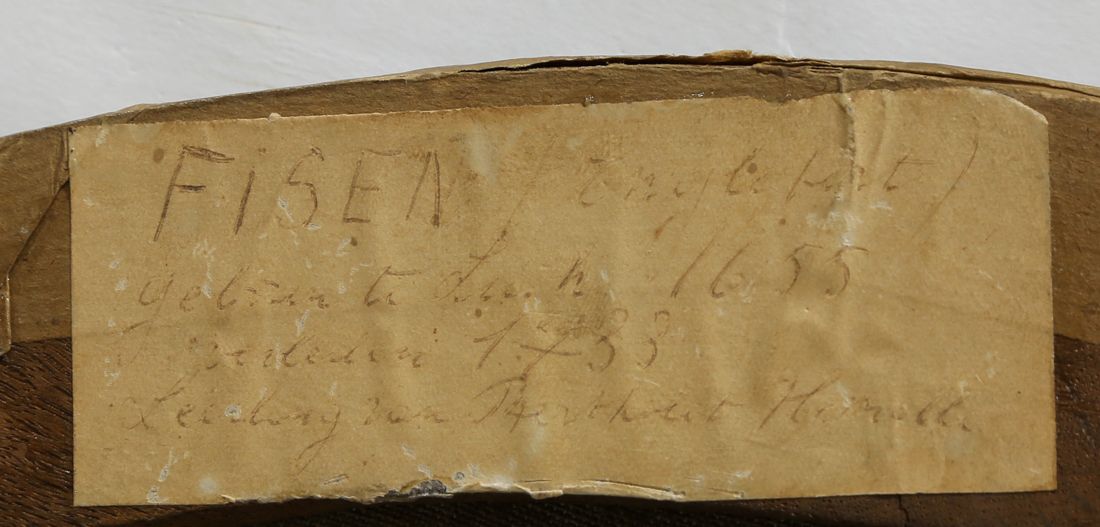 FISEN (Englebert)
geboren te Luik 1655
overleden 1733
Leerling van Bertholet